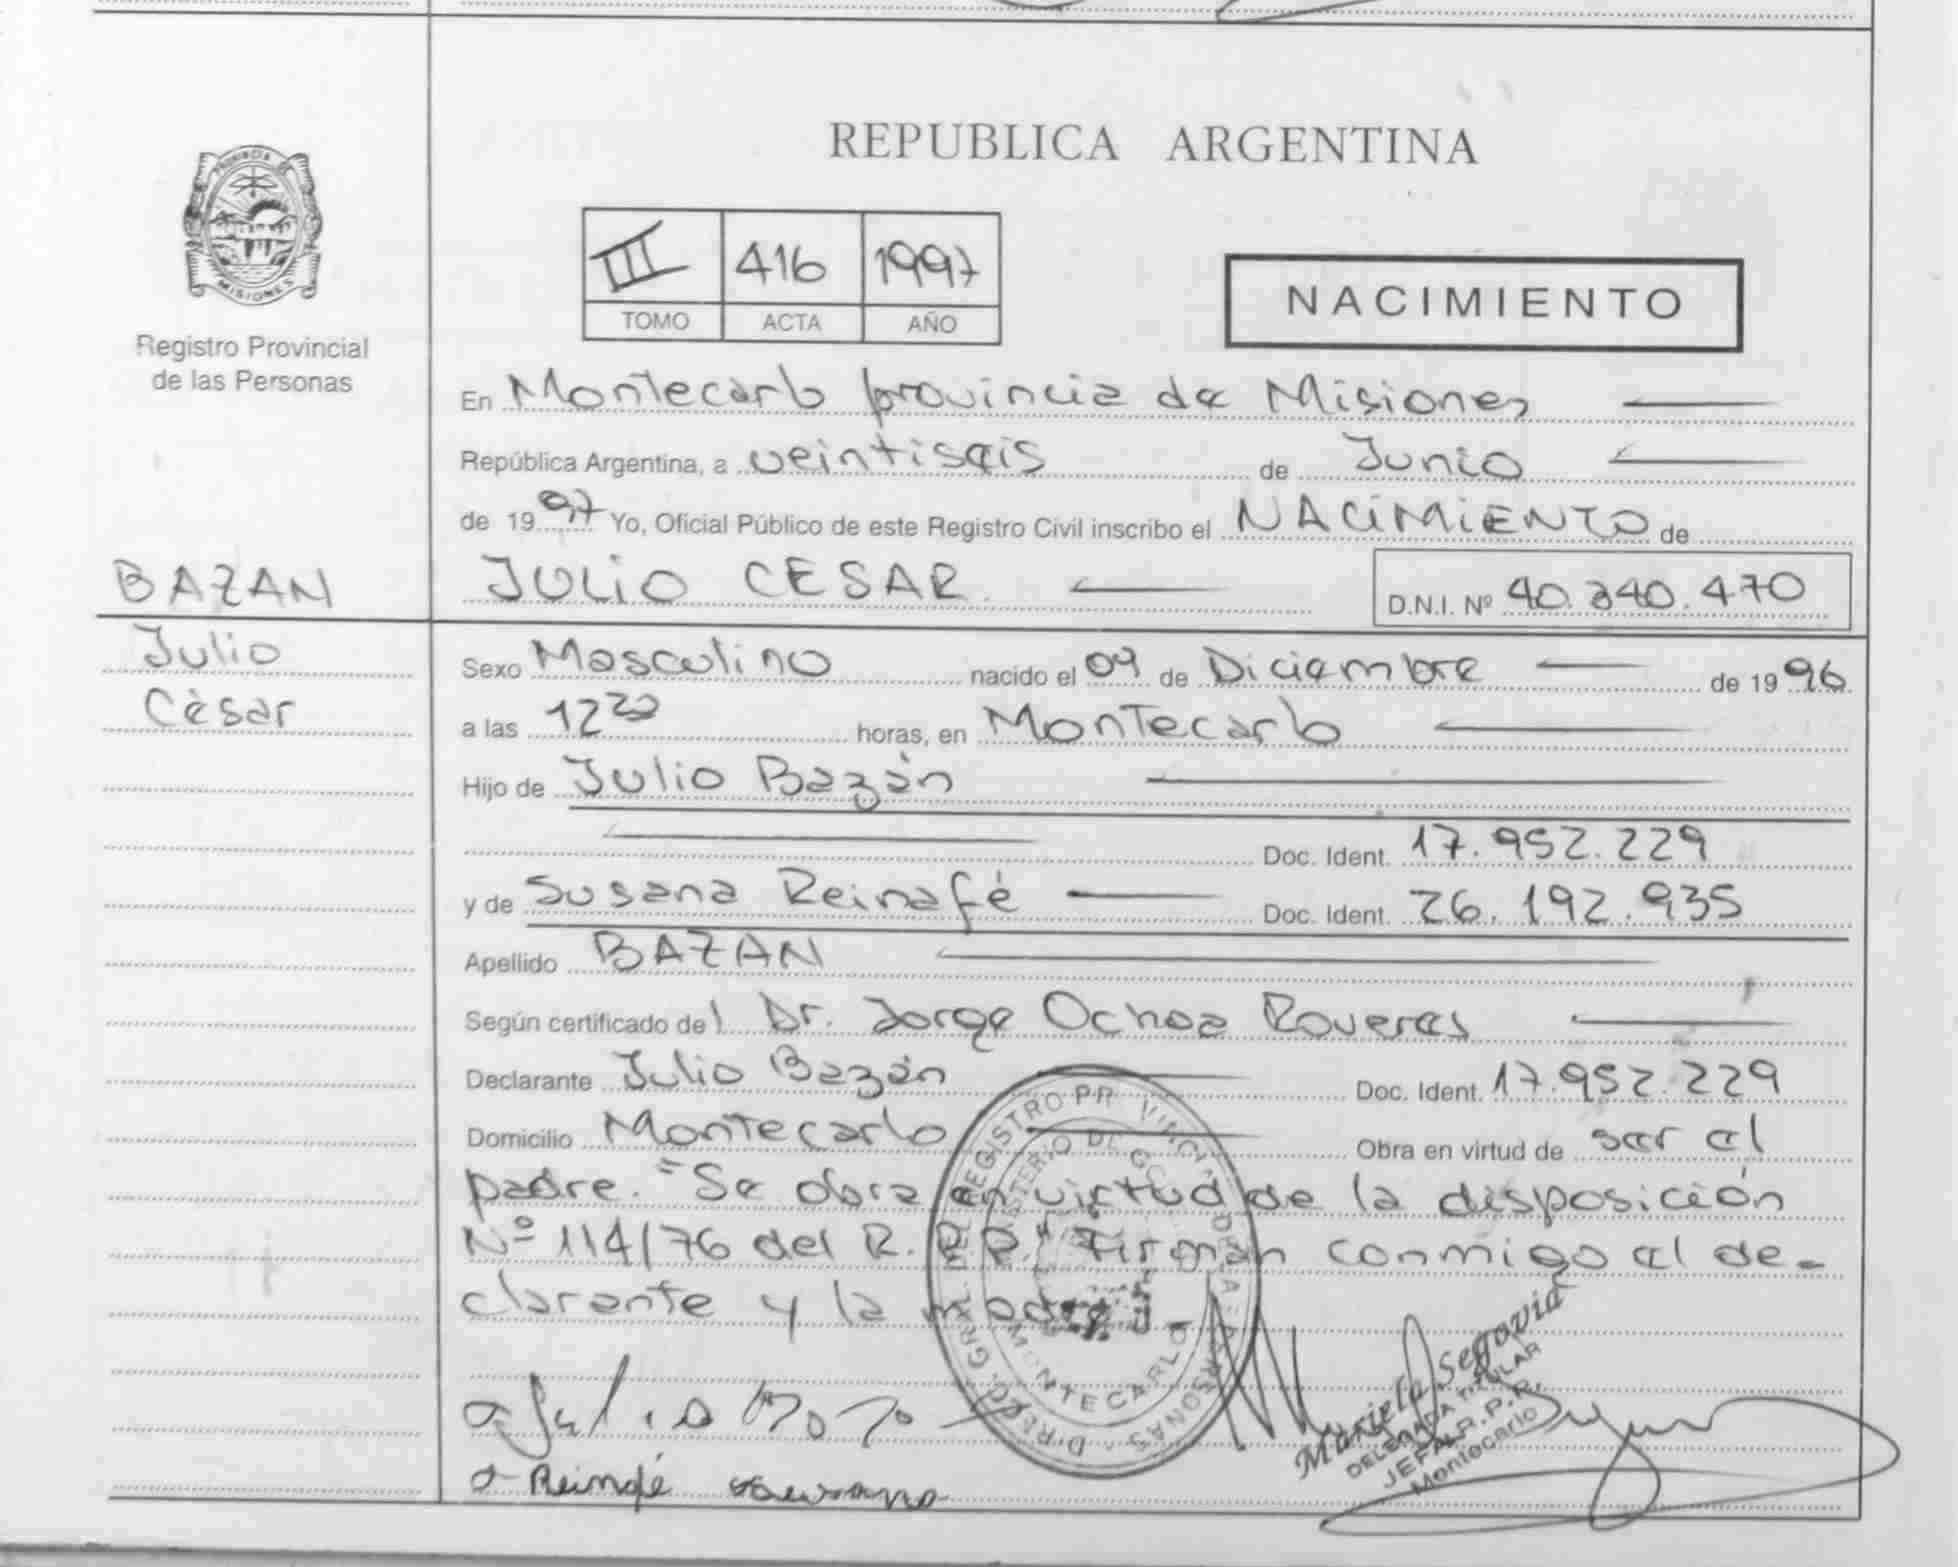 REPUBLICA ARGENTINA
PROVINCIA DE
MISIONES
Registro Provincial
de las Personas
III 416 1997
TOMO ACTA AÑO
NACIMIENTO
En Montecarlo provincia de Misiones
República Argentina, a veintiseis de Junio
de 1997 Yo, Oficial Público de este Registro Civil inscribo el NACIMIENTO de
BAZAN
Julio
César
JULIO CESAR D.N.I. Nº 40.340.470
Sexo Masculino nacido el 09 de Diciembre de 1996
a las 12 horas, en Montecarlo
Hijo de Julio Bazán
Doc. Ident. 17.952.229
y de Susana Reinafé Doc. Ident. 26.192.935
Apellido BAZAN
Según certificado del Dr. Jorge Ochoa Roveres
Declarante Julio Bazán Doc. Ident. 17.952.229
Domicilio Montecarlo Obra en virtud de ser el
padre. "Se obra en virtud de la disposición
Nº 114/76 del R.P.P." Firman conmigo el de-
clarante y la madre.
DIREC. GRAL. DEL REGISTRO PROVINCIAL DE LAS PERSONAS
MINISTERIO DE GOB
MONTECARLO
Mariela Segovia
DELEGADA TITULAR
JEFA R.P.P.
Montecarlo